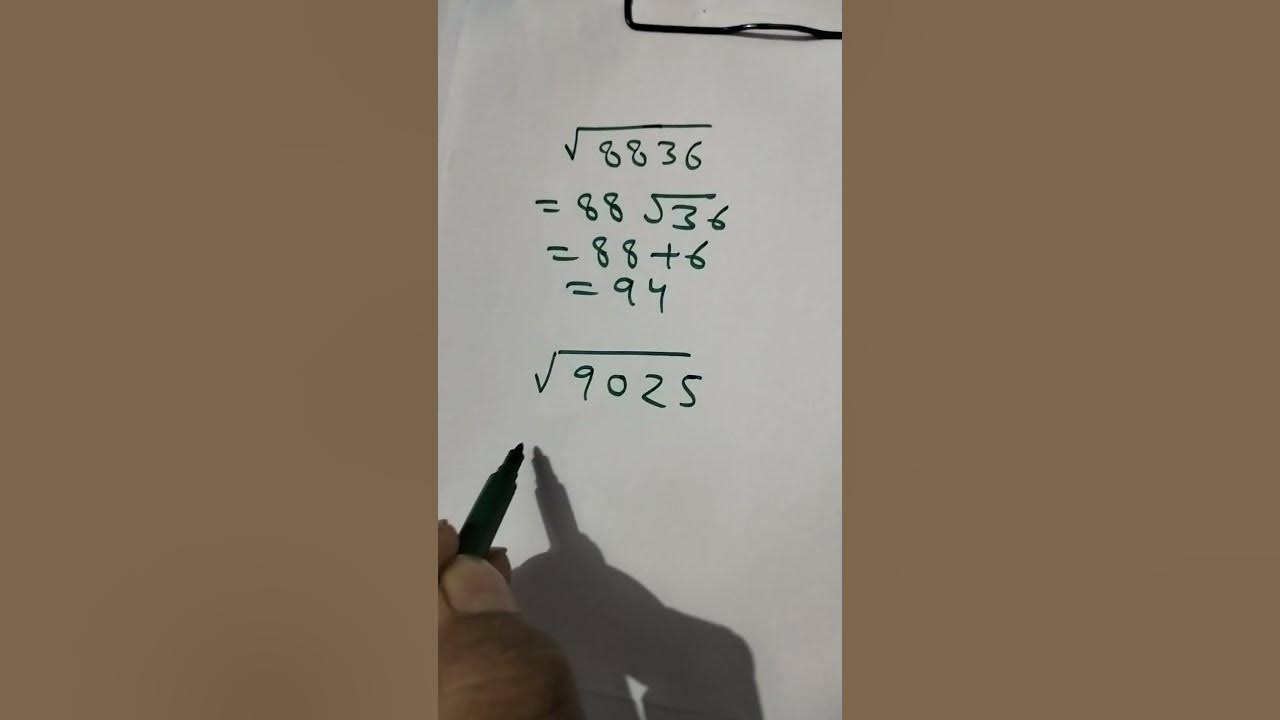 √8836
= 88 √36
= 88+6
= 94
√9025